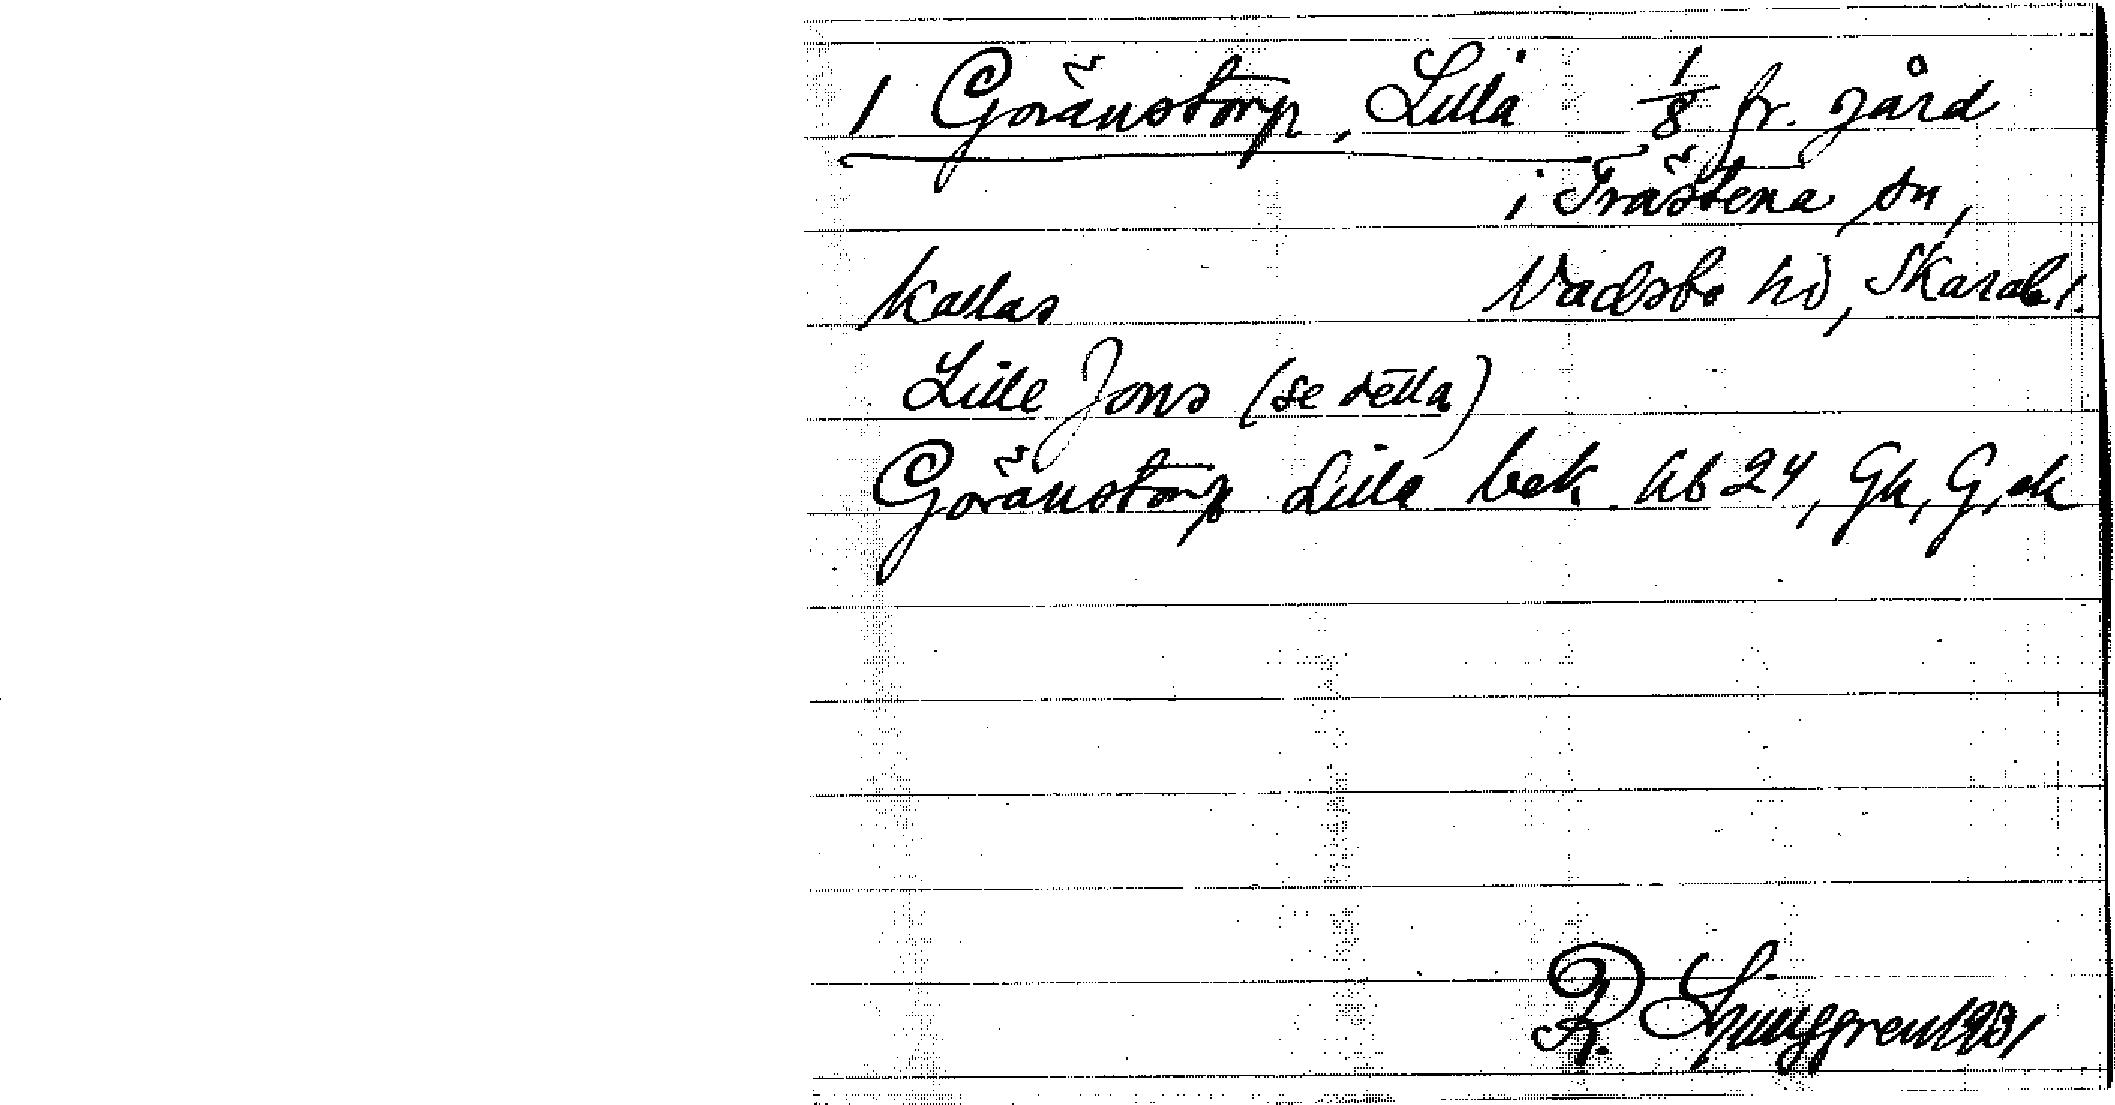 1 Göranstorp, Lilla 1/8 fr. gård
i Trästena sn,
kallas Vadsbo hd, Skarab l.
Lille Jons (se detta)
Göranstorp Lilla bek. Ab 24, Gk, G, ek
R. Ljunggren 1931